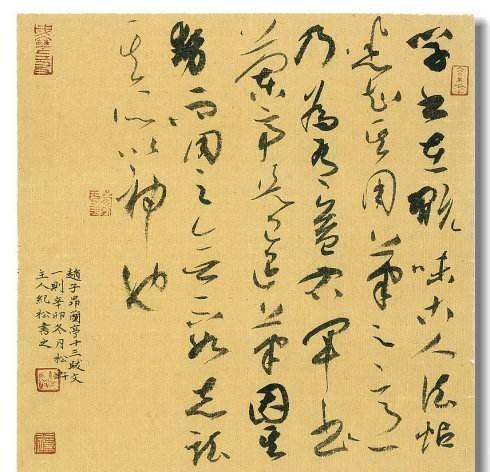 学书在玩味古人法帖
悉知其用筆之意
乃為有益右軍書
蘭亭是已退筆因其
勢而用之無不如志茲
其所以神也
趙子昂蘭亭十三跋文
一則辛卯冬月松
主人紀松書之